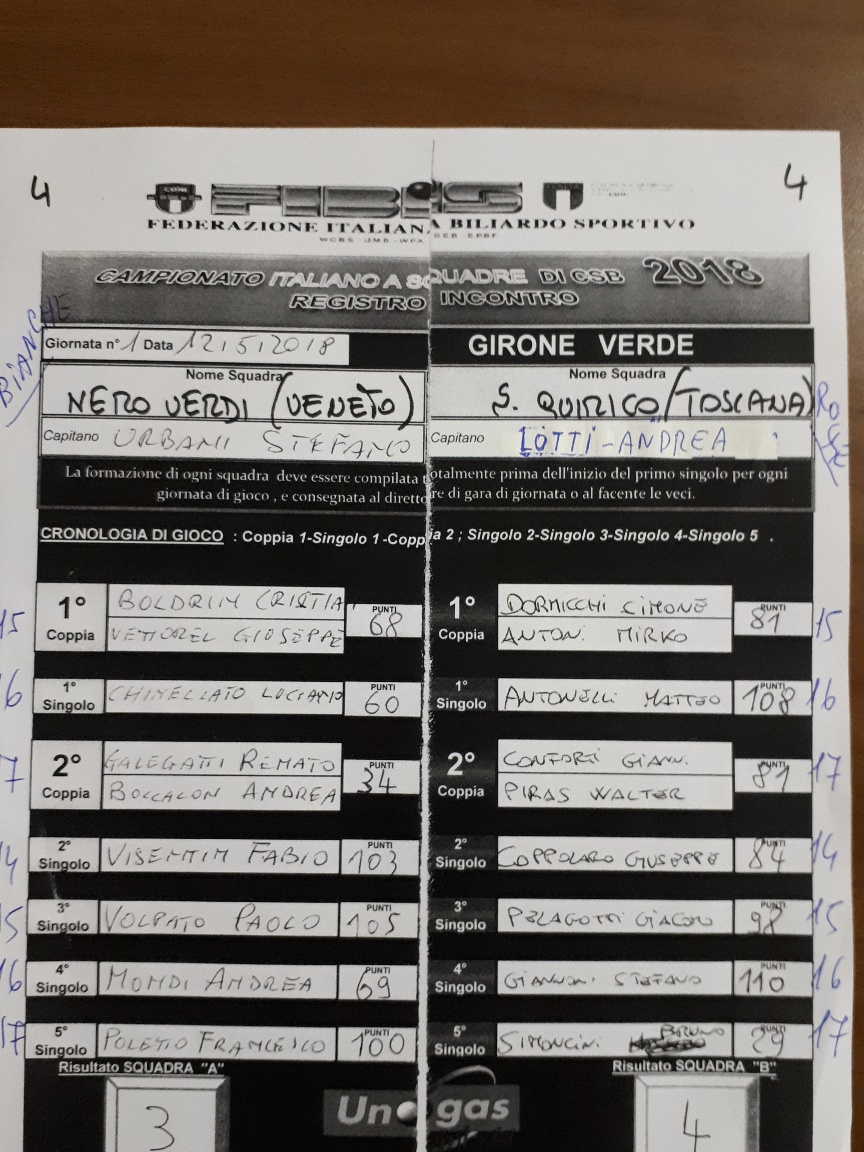 4 4
FIBiS
FEDERAZIONE ITALIANA BILIARDO SPORTIVO
CAMPIONATO ITALIANO A SQUADRE DI CSB 2018
REGISTRO INCONTRO
BIANCHE
Giornata n° 1 Data 12/5/2018 GIRONE VERDE
Nome Squadra Nome Squadra
NERO VERDI (VENETO) S. QUIRICO (TOSCANA) ROSSE
Capitano URBANI STEFANO Capitano LOTTI-ANDREA
La formazione di ogni squadra deve essere compilata totalmente prima dell'inizio del primo singolo per ogni
giornata di gioco , e consegnata al direttore di gara di giornata o al facente le veci.
CRONOLOGIA DI GIOCO : Coppia 1-Singolo 1 -Coppia 2 ; Singolo 2-Singolo 3-Singolo 4-Singolo 5 .
15 1° Coppia BOLDRIN CRISTIAN PUNTI 68 1° Coppia DORMICCHI SIMONE PUNTI 81 15
VETTOREL GIUSEPPE ANTONI MIRKO
16 1° Singolo CHINELLATO LUCIANO PUNTI 60 1° Singolo ANTONELLI MATTEO PUNTI 108 16
17 2° Coppia GALEGATTI RENATO PUNTI 34 2° Coppia CONFORTI GIANNI PUNTI 81 17
BOCCALON ANDREA PIRAS WALTER
14 2° Singolo VISENTIN FABIO PUNTI 103 2° Singolo COPPOLARO GIUSEPPE PUNTI 84 14
15 3° Singolo VOLPATO PAOLO PUNTI 105 3° Singolo PELAGOTTI GIACOMO PUNTI 98 15
16 4° Singolo MONDI ANDREA PUNTI 69 4° Singolo GIANNONI STEFANO PUNTI 110 16
17 5° Singolo POLETTO FRANCESCO PUNTI 100 5° Singolo SIMONCINI BRUNO PUNTI 29 17
Risultato SQUADRA "A" Risultato SQUADRA "B"
3 Unogas 4